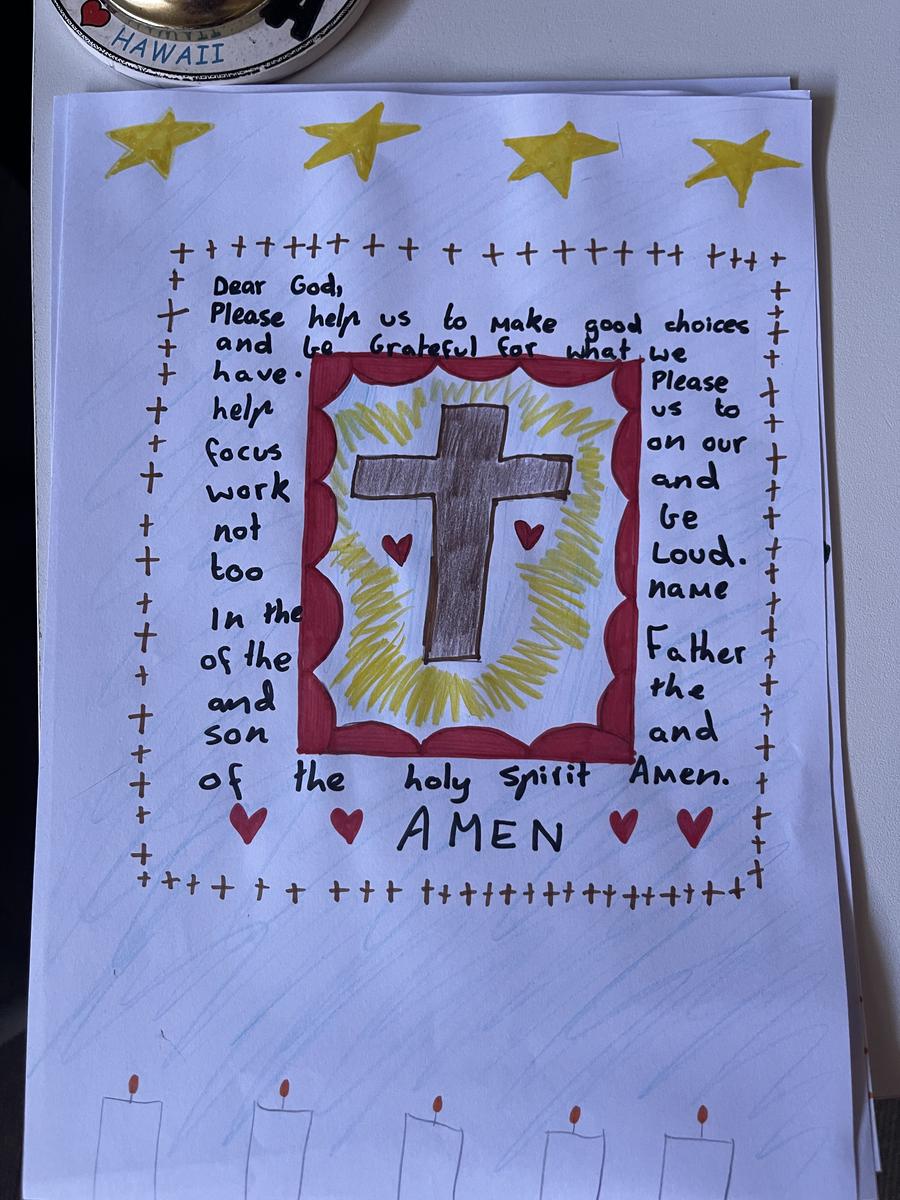 HAWAII
Dear God,
Please help us to make good choices
and be Grateful for what we
have. Please
help us to
focus on our
work and
not be
too Loud.
In the name
of the Father
and the
son and
of the holy spirit Amen.
AMEN